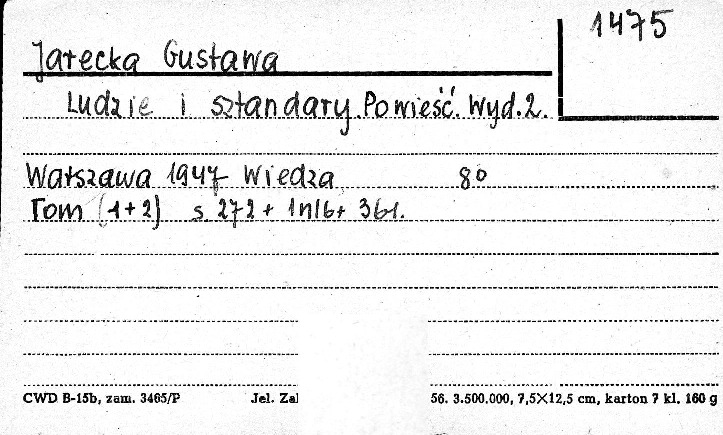 1475
Jarecka Gustawa
Ludzie i sztandary. Powieść. Wyd. 2.
Warszawa 1947 Wiedza 8o
Tom (1+2) s. 272 + 1nlb+ 361.
CWD B-15b, zam. 3465/P Jel. Zal 56. 3.500.000, 7,5×12,5 cm, karton 7 kl. 160 g